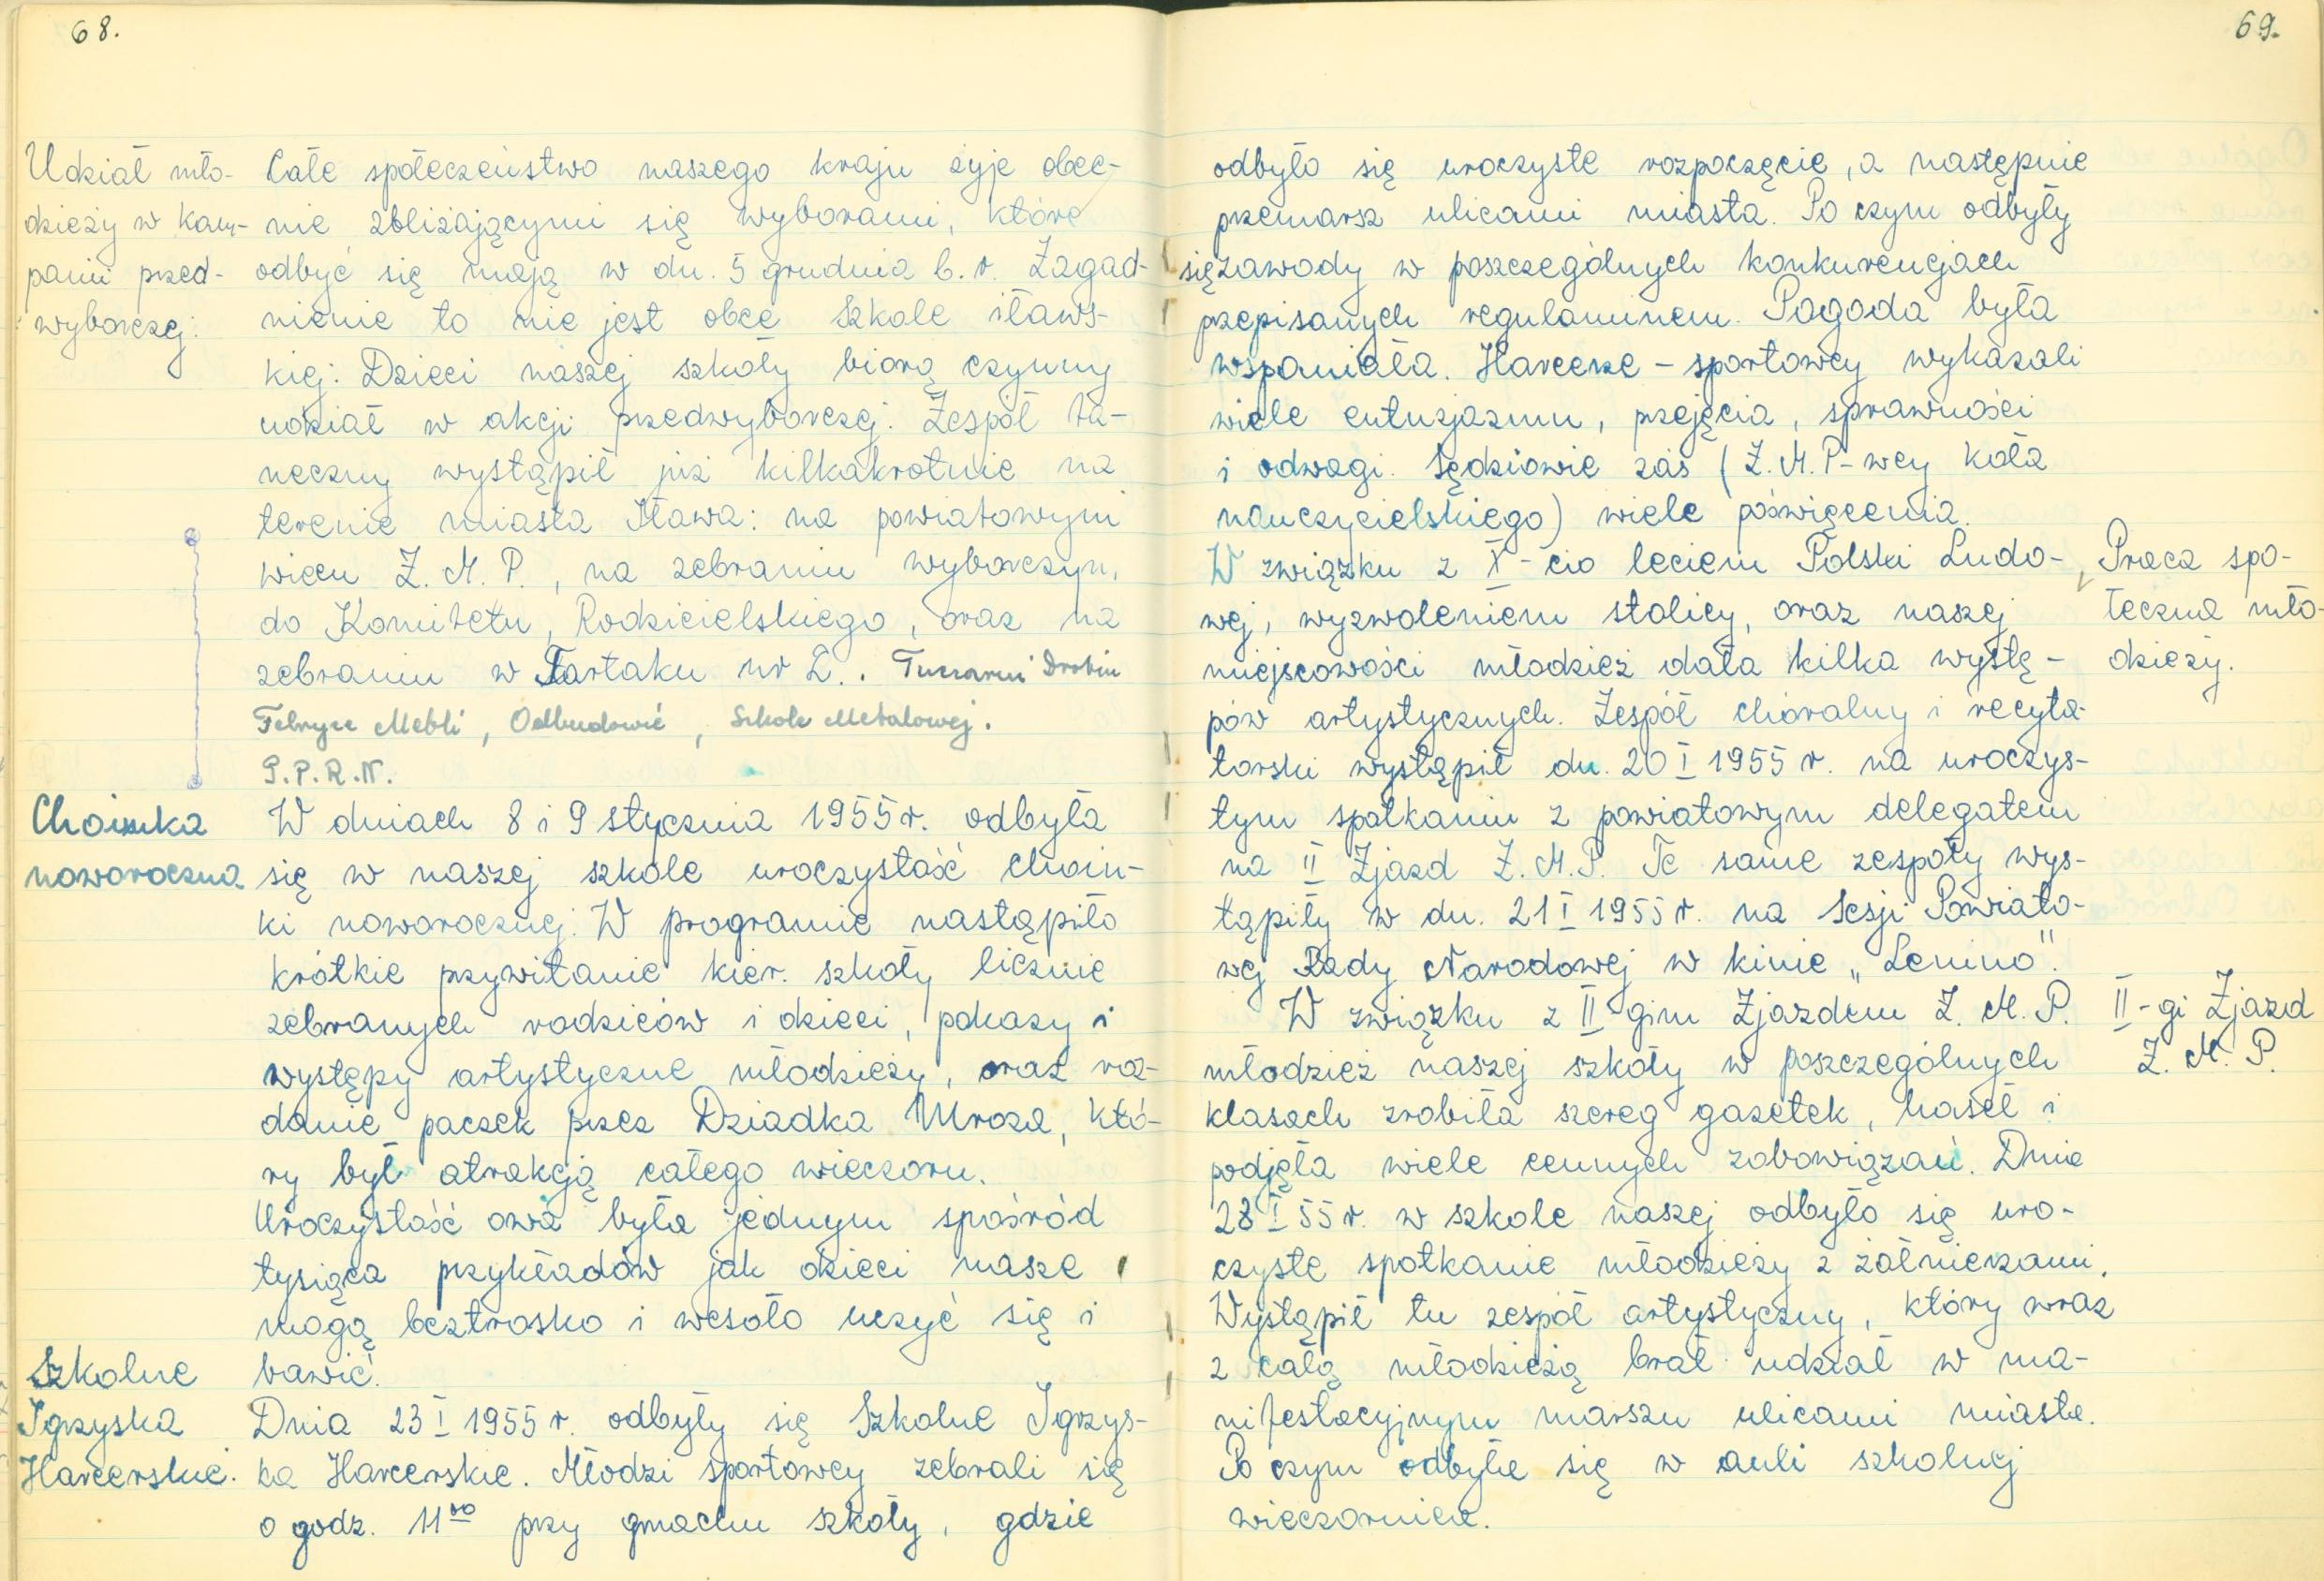 68.
Udział mło-
dzieży w kam-
panii przed-
wyborczej.
Całe społeczeństwo naszego kraju żyje obec-
nie zbliżającymi się wyborami, które
odbyć się mają w dn. 5 grudnia b.r. Zagad-
nienie to nie jest obce Szkole iławs-
kiej. Dzieci naszej szkoły biorą czynny
udział w akcji przedwyborczej. Zespół ta-
neczny wystąpił już kilkakrotnie na
terenie miasta Iława: na powiatowym
wiecu Z.M.P., na zebraniu wyborczym,
do Komitetu, Rodzicielskiego, oraz na
zebraniu w Tartaku nr 2.. Tuczarni Drobiu
Fabryce Mebli, Odbudowie, Szkole Metalowej.
P.P.R.N.
Choinka
noworoczna
W dniach 8 i 9 stycznia 1955 r. odbyła
się w naszej szkole uroczystość choin-
ki noworocznej. W programie nastąpiło
krótkie przywitanie kier. szkoły licznie
zebranych rodziców i dzieci, pokazy i
występy artystyczne młodzieży, oraz roz-
danie paczek przez Dziadka Mroza, któ-
ry był atrakcją całego wieczoru.
Uroczystość owa była jednym spośród
tysiąca przykładów jak dzieci nasze
mogą beztrosko i wesoło uczyć się i
bawić.
Szkolne
Igrzyska
Harcerskie.
Dnia 23 I 1955 r. odbyły się Szkolne Igrzys-
ka Harcerskie. Młodzi sportowcy zebrali się
o godz. 11⁰⁰ przy gmachu szkoły, gdzie
69.
odbyło się uroczyste rozpoczęcie, a następnie
przemarsz ulicami miasta. Po czym odbyły
się zawody w poszczególnych konkurencjach
przepisanych regulaminem. Pogoda była
wspaniała. Harcerze - sportowcy wykazali
wiele entuzjazmu, przejęcia, sprawności
i odwagi. Sędziowie zaś (Z.M.P-wcy Koła
nauczycielskiego) wiele poświęcenia.
W związku z X-cio leciem Polski Ludo-
wej, wyzwoleniem stolicy, oraz naszej
miejscowości młodzież dała kilka wystę-
pów artystycznych. Zespół chóralny i recyta-
torski wystąpił dn. 20 I 1955 r. na uroczys-
tym spotkaniu z powiatowym delegatem
na II Zjazd Z.M.P. Te same zespoły wys-
tąpiły w dn. 21 I 1955 r. na Sesji Powiato-
wej Rady Narodowej w kinie „Lenino".
Praca spo-
łeczna mło-
dzieży.
W związku z II-gim Zjazdem Z.M.P.
młodzież naszej szkoły w poszczególnych
klasach zrobiła szereg gazetek, haseł i
podjęła wiele cennych zobowiązań. Dnia
28 I 55 r. w szkole naszej odbyło się uro-
czyste spotkanie młodzieży z żołnierzami.
Wystąpił tu zespół artystyczny, który wraz
z całą młodzieżą brał udział w ma-
nifestacyjnym marszu ulicami miasta.
Po czym odbyła się w auli szkolnej
wieczornica.
II-gi Zjazd
Z.M.P.